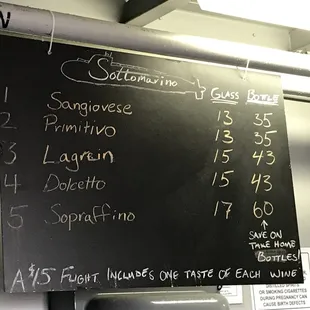 Sottomarino
GLASS BOTTLE
1 Sangiovese 13 35
2 Primitivo 13 35
3 Lagrein 15 43
4 Dolcetto 15 43
5 Sopraffino 17 60
↑
SAVE ON
TAKE HOME
BOTTLES
A $15 FLIGHT INCLUDES ONE TASTE OF EACH WINE
DISTILLED SPIRITS
OR SMOKING CIGARETTES
DURING PREGNANCY CAN
CAUSE BIRTH DEFECTS